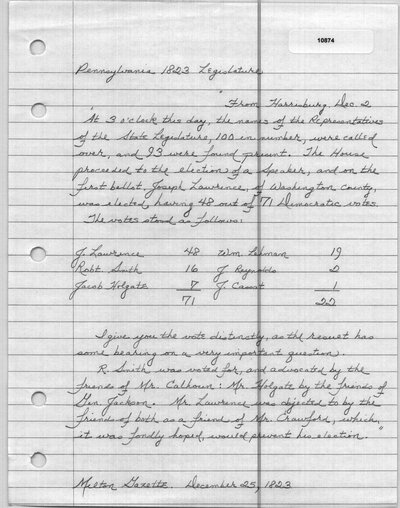 10874
Pennsylvania 1823 Legislature
"From Harrisburg, Dec. 2
"At 3 o'clock this day, the names of the Representatives
of the State Legislature, 100 in number, were called
over, and 93 were found present. The House
proceeded to the election of a Speaker, and on the
first ballot, Joseph Lawrence, of Washington County,
was elected, having 48 out of 71 Democratic votes.
The votes stood as follows:
J. Lawrence 48 Wm Lehman 19
Robt. Smith 16 J Reynolds 2
Jacob Holgate 7 J. Cassat 1
71 22
I give you the vote distinctly, as the result has
some bearing on a very important question.
R. Smith was voted for, and advocated by the
friends of Mr. Calhoun: Mr. Holgate by the friends of
Gen. Jackson. Mr. Lawrence was objected to by the
friends of both as a friend of Mr. Crawford, which,
it was fondly hoped, would prevent his election."
Milton Gazette. December 25, 1823